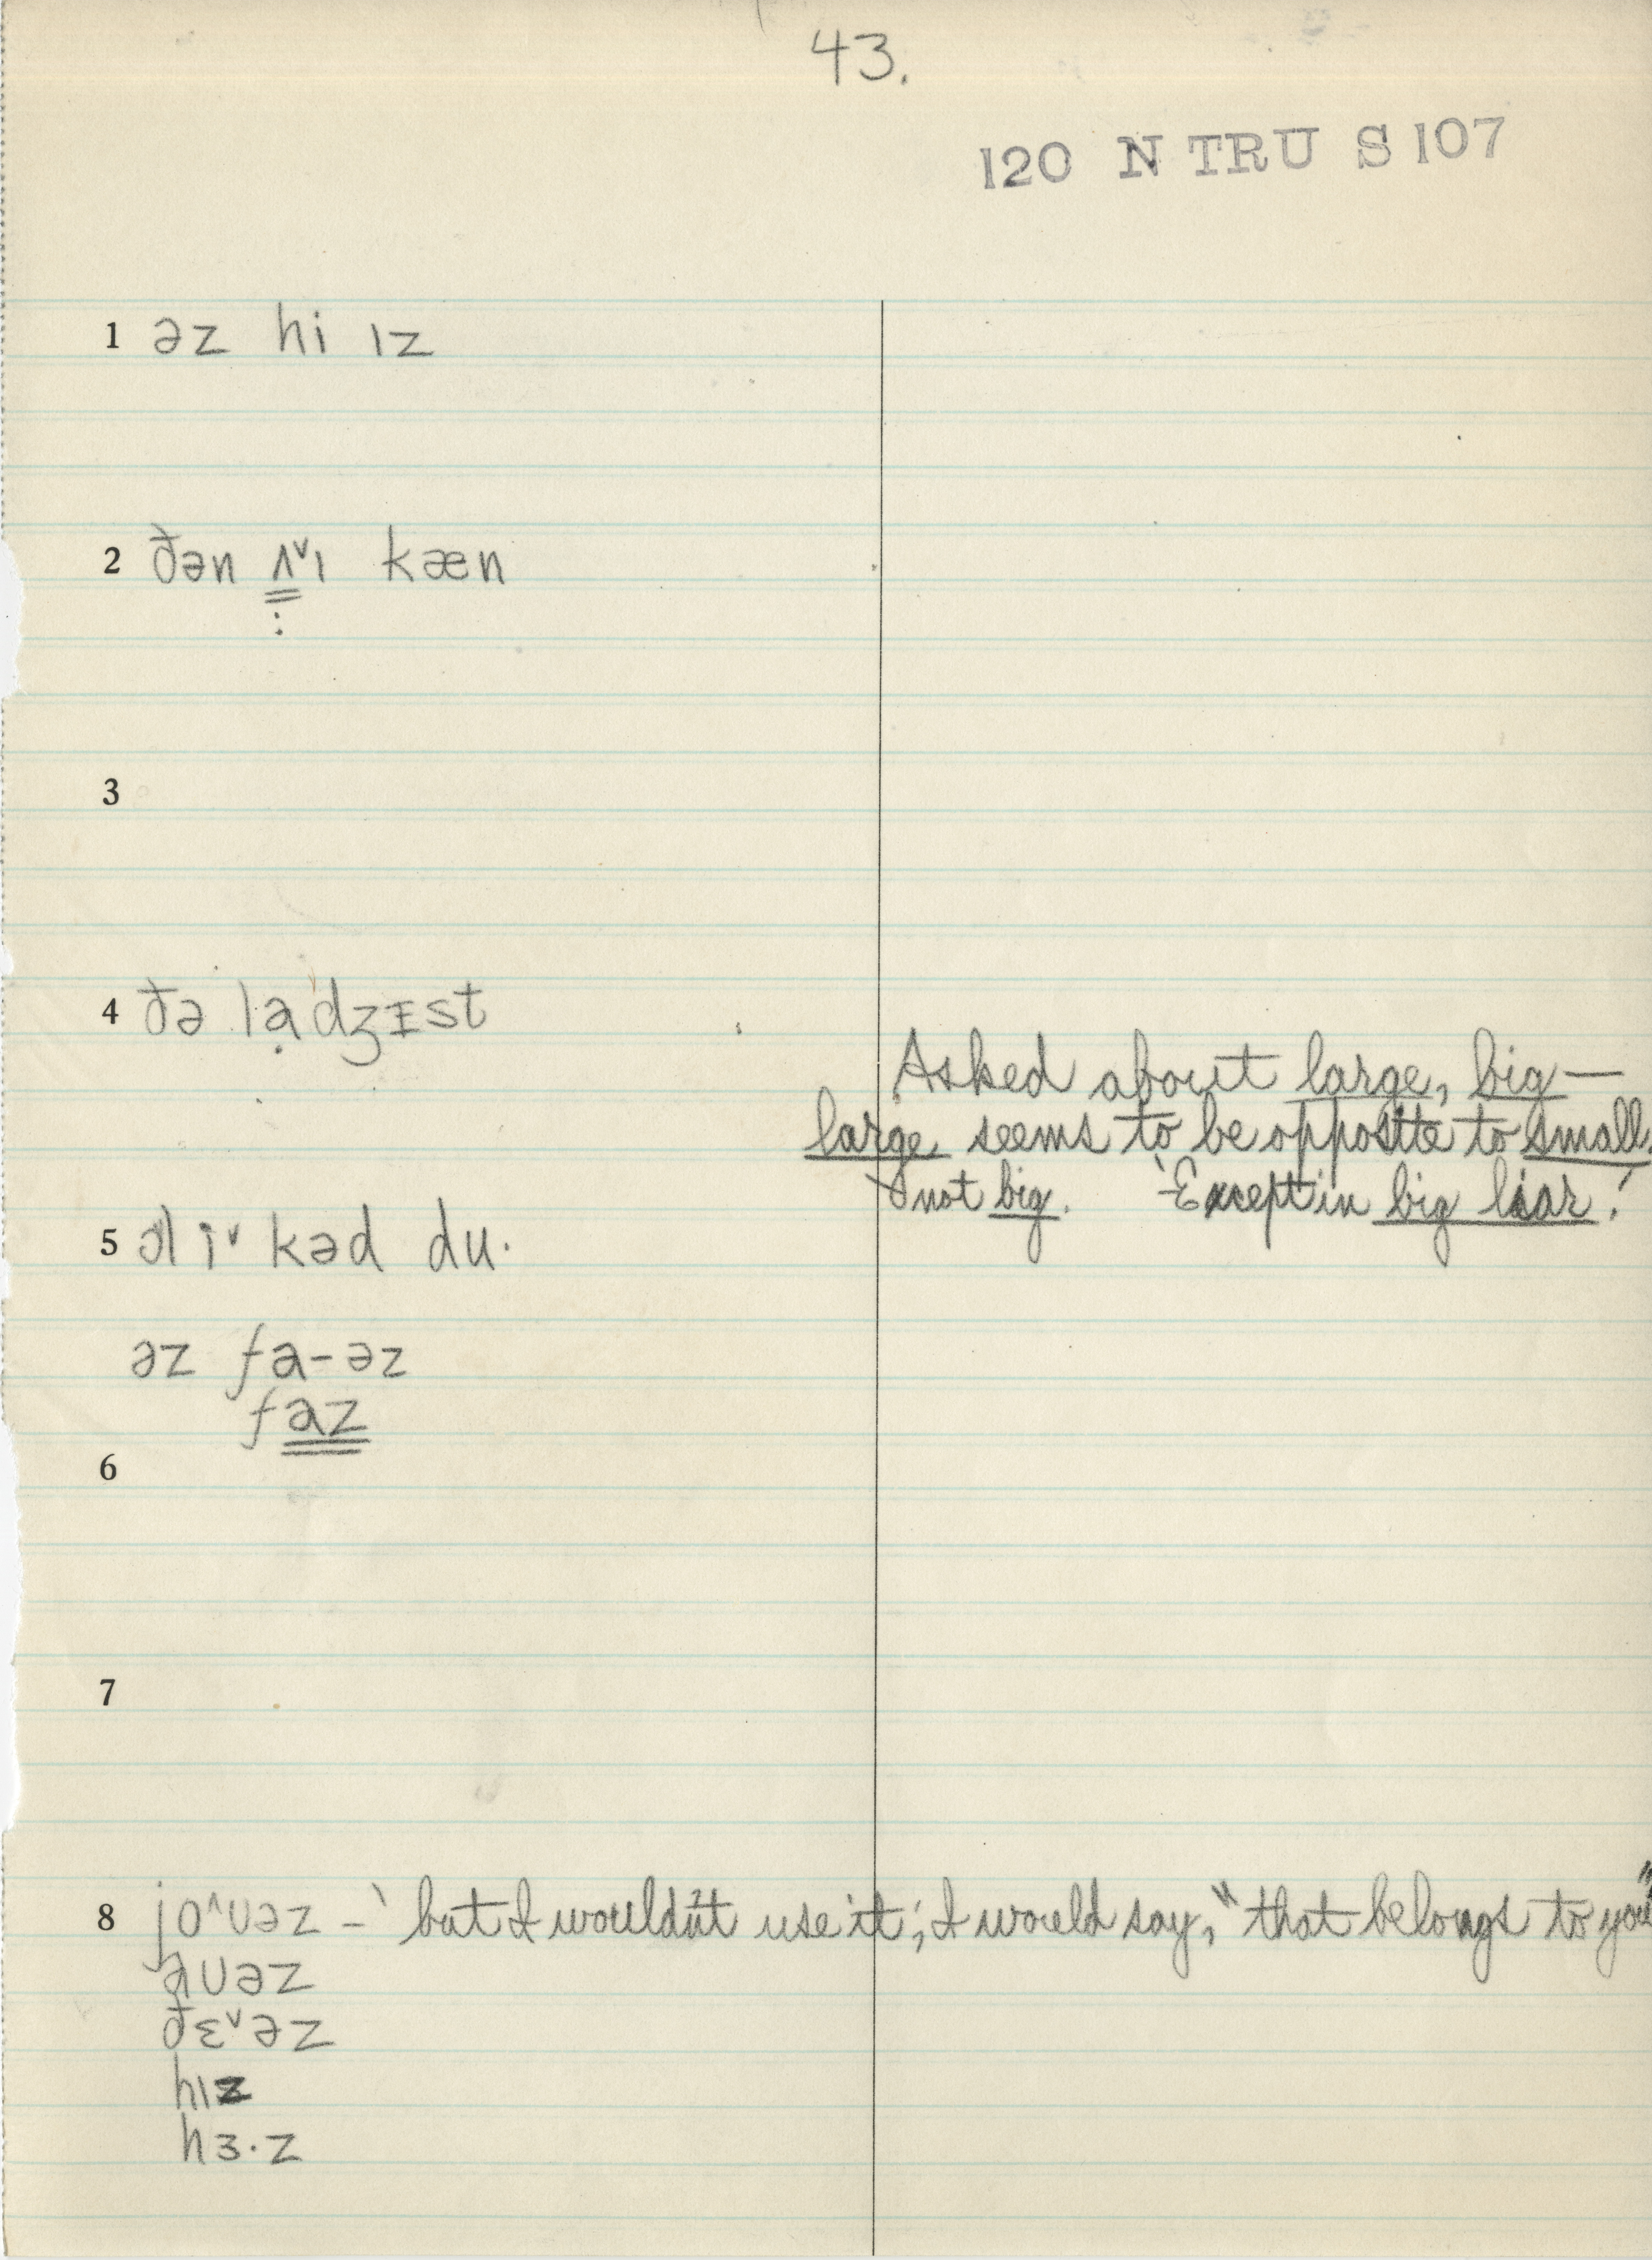 43.
120 N TRU S 107
1 əz hi ɪz
2 ðən ʌ˅ɪ kæn
3
4 ðə lạdʒɪst
Asked about large, big—
large seems to be opposite to small,
not big. 'Except in big liar.'
5 əl i˅ kəd du·
əz fa-əz
faz
6
7
8 jo˄ʊəz – 'but I wouldn't use it; I would say, "that belongs to you"
aʊəz
ðɛ˅əz
hɪz
hɜ·z